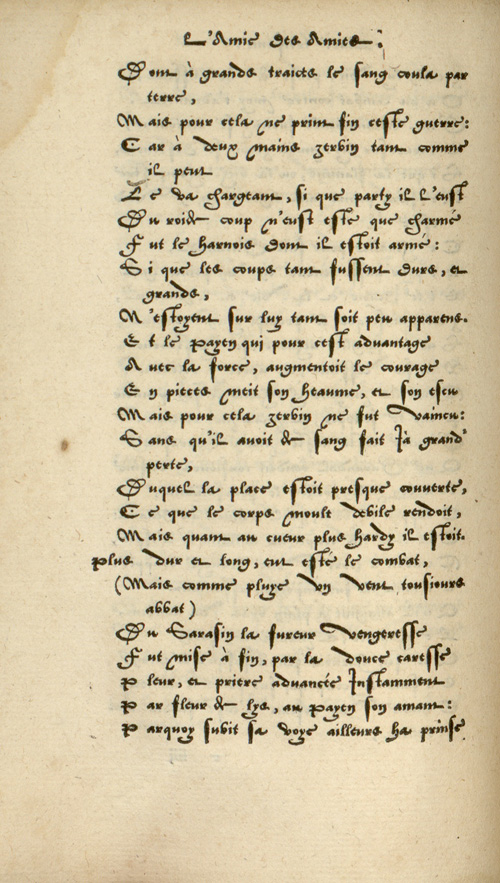 L'Amie des Amies.
Dont à grands traictz le sang coula par
terre,
Mais pour cela ne print fin ceste guerre:
Car à deux mains zerbin tant comme
il peut
Le va chargeant, si que party il l'eust
Du roide coup n'eust esté que charmé
Fut le harnois dont il estoit armé:
Si que les coups tant fussent durs, et
grands,
N'estoyent sur luy tant soit peu apparens.
Et le payen qui pour cest advantage
Avec la force, augmentoit le courage
En pieces meit son heaume, et son escu
Mais pour cela zerbin ne fut vaincu:
Sans qu'il avoit de sang fait Jà grand'
perte,
Duquel la place estoit presque couverte,
Ce que le corps moult debile rendoit,
Mais quant au cueur plus hardy il estoit.
Plus dur et long, eut esté le combat,
(Mais comme pluye un vent tousiours
abbat)
Du Sarasin la fureur vengeresse
Fut mise à fin, par la douce caresse
Pleur, et priere advancée Instamment
Par fleur de lys, au payen son amant:
Parquoy subit sa voye ailleurs ha prinse